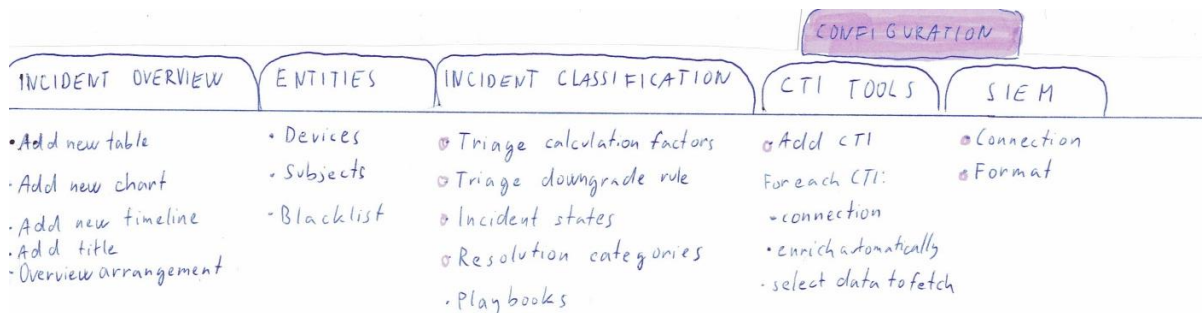 CONFIGURATION
INCIDENT OVERVIEW
• Add new table
• Add new chart
• Add new timeline
• Add title
• Overview arrangement
ENTITIES
• Devices
• Subjects
• Blacklist
INCIDENT CLASSIFICATION
• Triage calculation factors
• Triage downgrade rule
• Incident states
• Resolution categories
• Playbooks
CTI TOOLS
• Add CTI
For each CTI:
• connection
• enrich automatically
• select data to fetch
SIEM
• Connection
• Format